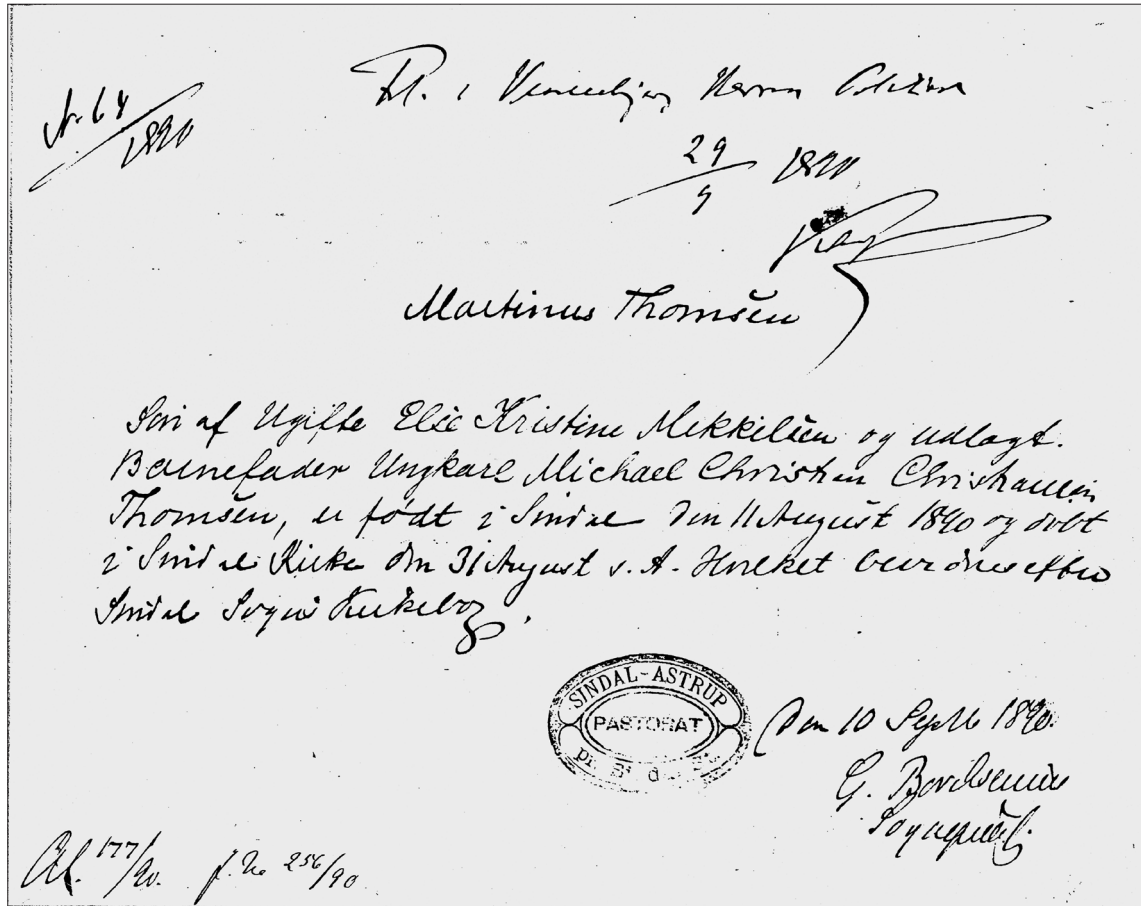 Nr. 64
1890
Pl. i Herred
29
9
1890
Martinus Thomsen
Søn af Ugifte Else Kristine Mikkelsen og udlagt.
Barnefader Ungkarl Michael Christian Christiansen
Thomsen, er født i Sindal den 11 August 1890 og døbt
i Sindal Kirke den 31 August s. A. Hvilket bevidnes efter
Sindal Sogns Kirkebog.
SINDAL-ASTRUP
PASTORAT
Den 10 Septb 1890.
G.
Sognepræst.
177/90. J. No 256/90